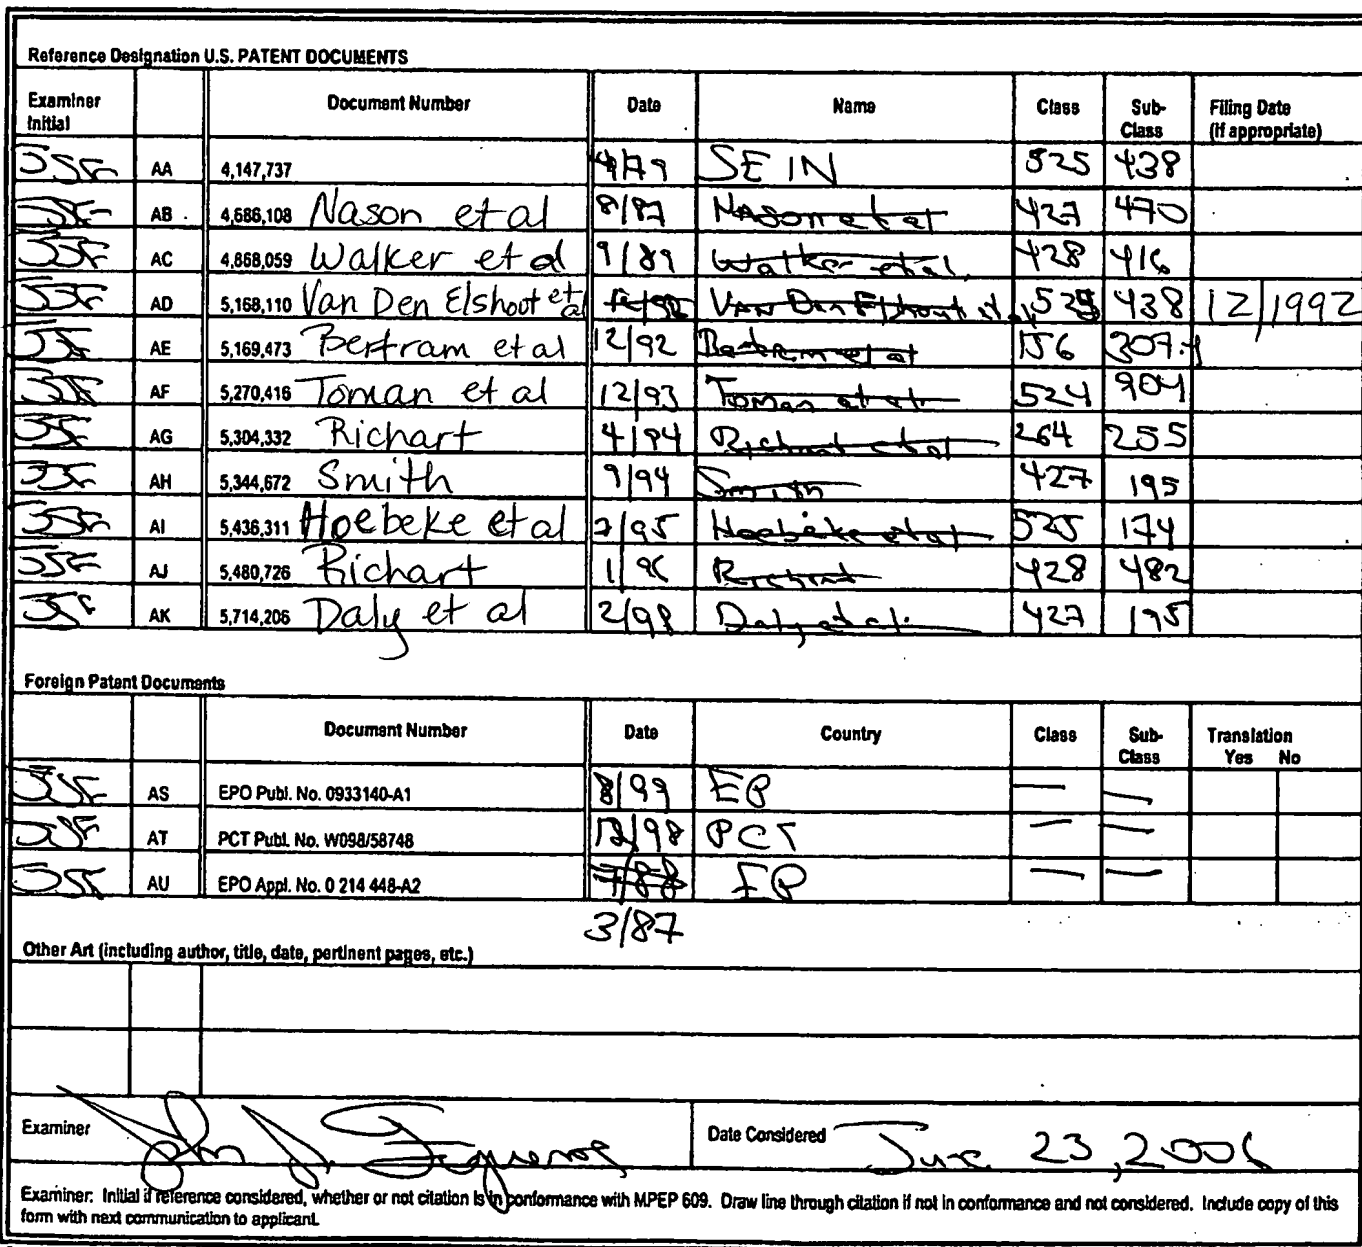 Reference Designation U.S. PATENT DOCUMENTS
Examiner Initial Document Number Date Name Class Sub-Class Filing Date (if appropriate)
JSF AA 4,147,737 4/79 SEIN 525 438
JSF AB 4,686,108 Nason et al 8/87 Nason et al 427 470
JSF AC 4,868,059 Walker et al 9/89 Walker et al. 428 416
JSF AD 5,168,110 Van Den Elshout et al 12/92 Van Den Elshout et al 525 438 12/1992
JSF AE 5,169,473 Bertram et al 12/92 Bertram et al 156 307.1
JSF AF 5,270,416 Toman et al 12/93 Toman et al 524 904
JSF AG 5,304,332 Richart 4/94 Richart et al 264 255
JSF AH 5,344,672 Smith 9/94 Smith 427 195
JSF AI 5,436,311 Hoebeke et al 7/95 Hoebeke et al 525 174
JSF AJ 5,480,726 Richart 1/96 Richart 428 482
JSF AK 5,714,206 Daly et al 2/98 Daly et al. 427 195
Foreign Patent Documents
Document Number Date Country Class Sub-Class Translation Yes No
JSF AS EPO Publ. No. 0933140-A1 8/99 EP — —
JSF AT PCT Publ. No. W098/58748 12/98 PCT — —
JSF AU EPO Appl. No. 0 214 448-A2 7/88 EP — —
3/87
Other Art (including author, title, date, pertinent pages, etc.)
Examiner John J. Figueroa Date Considered June 23, 2006
Examiner: Initial if reference considered, whether or not citation is in conformance with MPEP 609. Draw line through citation if not in conformance and not considered. Include copy of this
form with next communication to applicant.